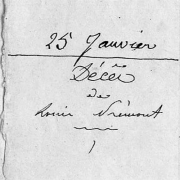 25 Janvier
Décès
de
Louis Frémont